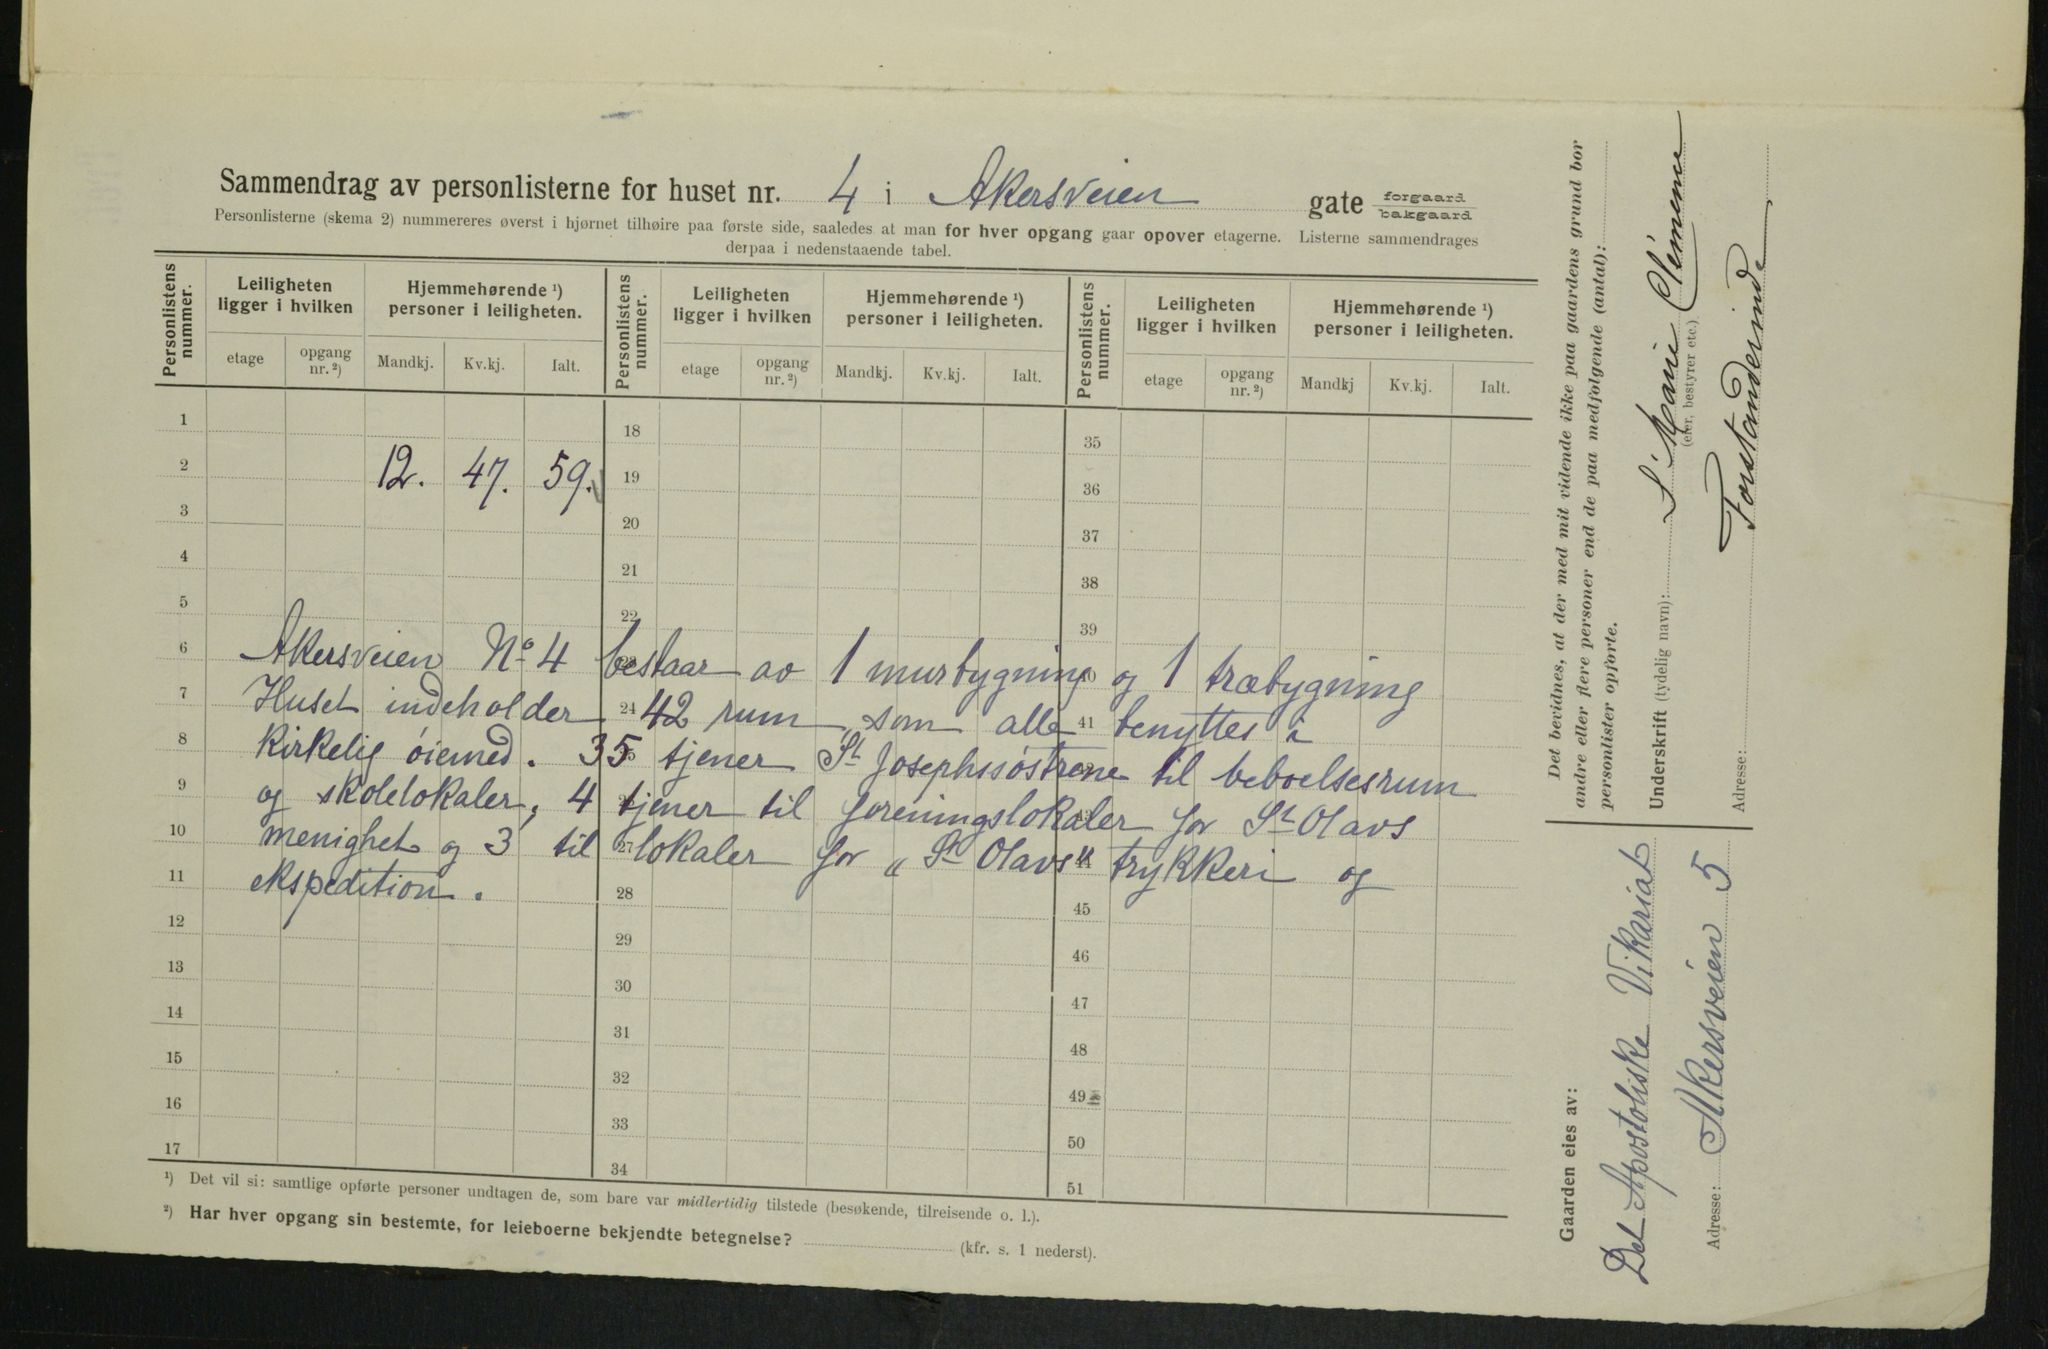 Sammendrag av personlisterne for huset nr. 4 i Akersveien gate forgaard bakgaard
Personlisterne (skema 2) nummereres øverst i hjørnet tilhøire paa første side, saaledes at man for hver opgang gaar opover etagerne. Listerne sammendrages
derpaa i nedenstaaende tabel.
Personlistens nummer. Leiligheten ligger i hvilken Hjemmehørende ¹) personer i leiligheten. Personlistens nummer. Leiligheten ligger i hvilken Hjemmehørende ¹) personer i leiligheten. Personlistens nummer. Leiligheten ligger i hvilken Hjemmehørende ¹) personer i leiligheten.
etage opgang nr. ²) Mandkj. Kv.kj. Ialt. etage opgang nr. ²) Mandkj. Kv.kj. Ialt. etage opgang nr. ²) Mandkj Kv.kj. Ialt.
1 18 35
2 12. 47. 59. 19 36
3 20 37
4 21 38
5 22 39
6 23 40
7 24 41
8 25 42
9 26 43
10 27 44
11 28 45
12 29 46
13 30 47
14 31 48
15 32 49
16 33 50
17 34 51
Akersveien No 4 bestaar av 1 murbygning og 1 træbygning
Huset indeholder 42 rum, som alle benyttes i
kirkelig øiemed. 35 tjener St Josephssøstrene til beboelsesrum
og skolelokaler, 4 tjener til foreningslokaler for St Olavs
menighet og 3 til lokaler for „St Olavs" trykkeri og
ekspedition.
¹) Det vil si: samtlige opførte personer undtagen de, som bare var midlertidig tilstede (besøkende, tilreisende o. l.).
²) Har hver opgang sin bestemte, for leieboerne bekjendte betegnelse? (kfr. s. 1 nederst).
Det bevidnes, at der med mit vidende ikke paa gaardens grund bor
andre eller flere personer end de paa medfølgende (antal):
personlister opførte.
Underskrift (tydelig navn): S. Marie Clémence
(eier, bestyrer etc.)
Forstanderinde
Adresse:
Gaarden eies av:
Det Apostoliske Vikariat
Adresse: Akersveien 5